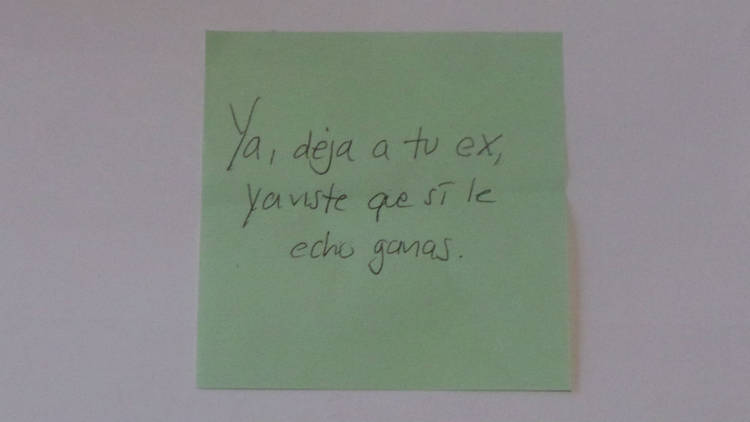 Ya, deja a tu ex,
ya viste que sí le
echo ganas.